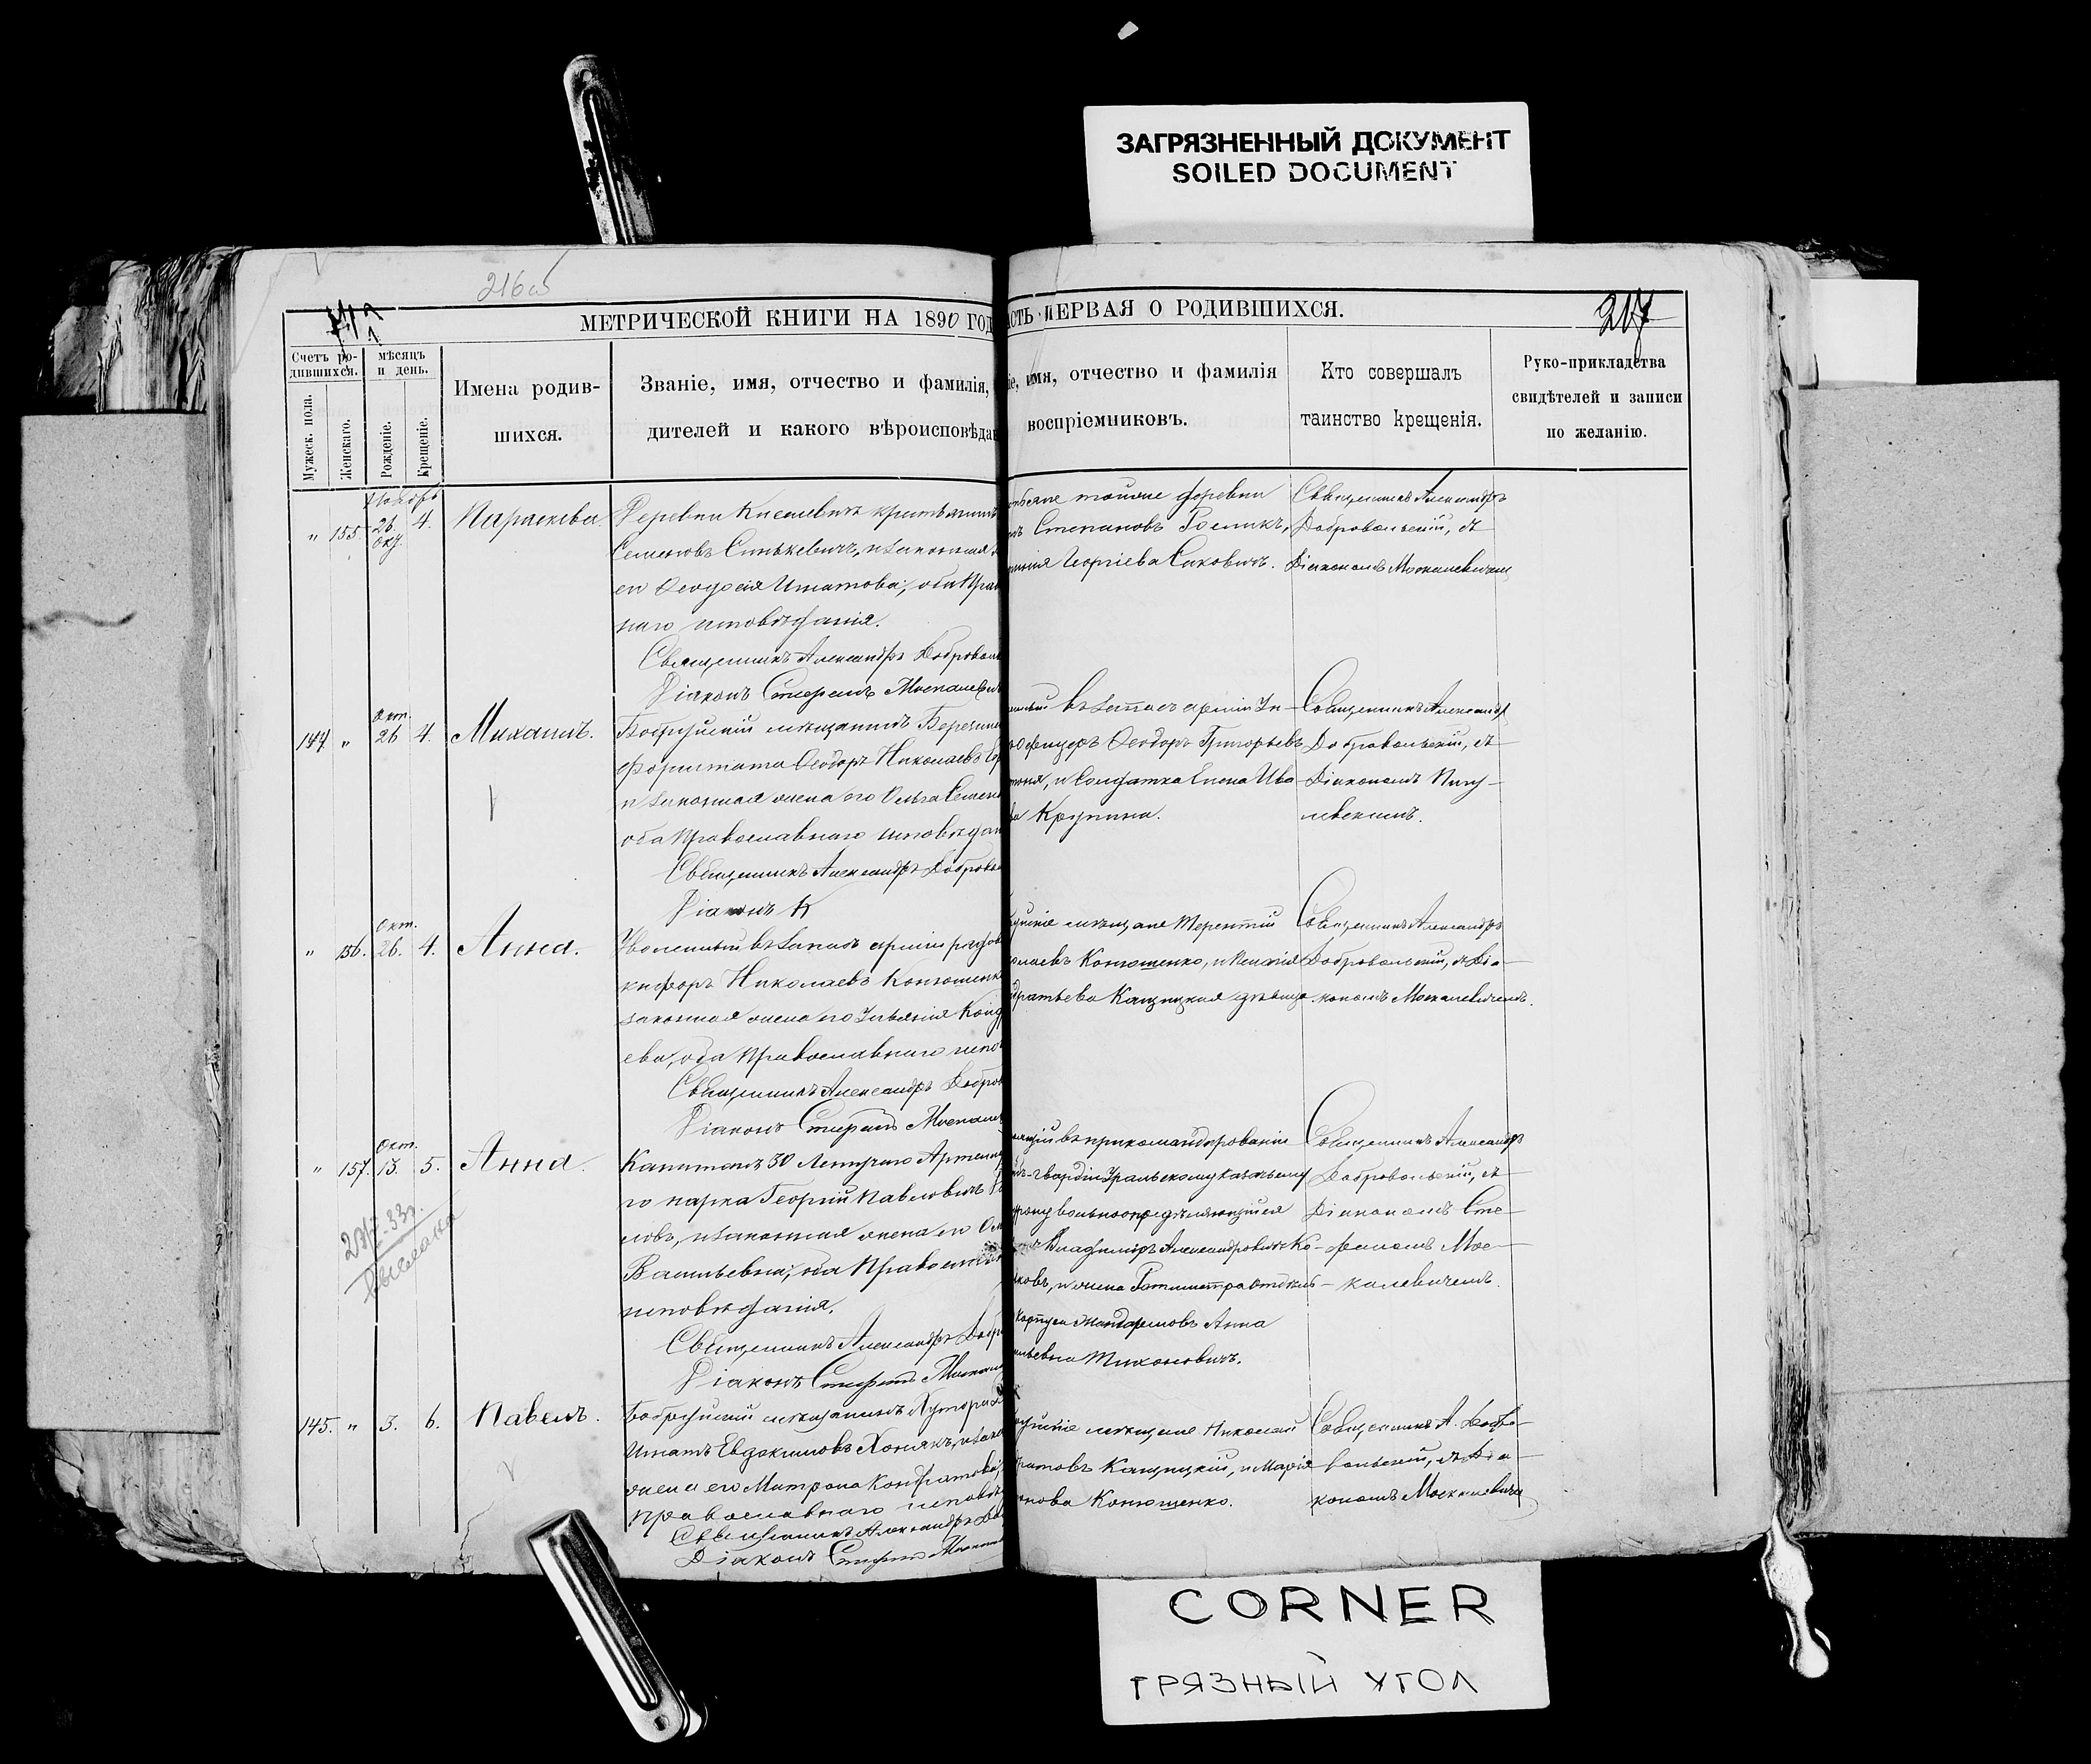 ЗАГРЯЗНЕННЫЙ ДОКУМЕНТ
SOILED DOCUMENT
216об
МЕТРИЧЕСКОЙ КНИГИ НА 1890 ГОД
АСТЬ ПЕРВАЯ О РОДИВШИХСЯ.
217
Счетъ ро-
дившихся.
мѣсяцъ
и день.
Мужеск. пола.
Женскаго.
Рожденіе.
Крещеніе.
Имена родив-
шихся.
Званіе, имя, отчество и фамилія,
дителей и какого вѣроисповѣдан
іе, имя, отчество и фамилія
воспріемниковъ.
Кто совершалъ
таинство крещенія.
Руко-прикладства
свидѣтелей и записи
по желанію.
Ноябрь
" 155. 26 Окт. 4. Параскева
Деревни Киселевичъ крестьянинъ
Семеновъ Синькевичъ, и законная
его Ѳеодосія Игнатова; оба Прав
наго исповѣданія.
Священникъ Александръ Доброволь
Діаконъ Стефанъ Москалевич
тойже деревни
Степановъ Росликъ,
Георгіева Саковичъ.
Священникъ Александръ
Добровольскій, съ
Діакономъ Москалевичемъ
144 " Окт. 26 4. Михаилъ.
Бобруйскій мѣщанинъ Березин
форштата Ѳеодоръ Николаевъ
и законная жена его Ольга Семен
оба Православнаго исповѣдан
Священникъ Александръ Доброво
Діаконъ
въ запасъ арміи Ун-
офицеръ Ѳеодоръ Григорьевъ
и Солдатка Елена Ива-
Крупина.
Священникъ Александр
Добровольскій, съ
Діакономъ Пигу-
левскимъ.
" 156. Окт. 26. 4. Анна.
Уволенный въ запасъ арміи рядов
кифоръ Николаевъ Конюшенк
законная жена его Ульянія Конд
ева, оба Православнаго испо
Священникъ Александръ Добров
Діаконъ Стефанъ Москал
уйскіе мѣщане Терентій
олаевъ Конюшенко, и Ксенія
дратьева Кащицкая дѣвица
Священникъ Александръ
Добровольскій, съ Діа-
кономъ Москалевичемъ.
" 157. Окт. 13. 5. Анна.
Капитанъ 30 Летучаго Артилл
го парка Георгій Павловичъ
ловъ, и законная жена его
Васильевна; оба Православн
исповѣданія.
Священникъ Александръ Добр
Діаконъ Стефанъ Москал
въ прикомандированіи
гвардіи Уральскому казачьему
вольноопредѣляющійся
Владиміръ Александровичъ Ко-
ковъ, и жена Ротмистра Отдѣль-
Корпуса Жандармовъ Анна
Тихоновичъ.
Священникъ Александръ
Добровольскій, съ
Діакономъ Сте-
фаномъ Мос-
калевичемъ.
выслана
145. " 3. 6. Павелъ.
Бобруйскій мѣщанинъ
Игнатъ Евдокимовъ Хомякъ, и зако
жена его Матрона Кондратова;
православнаго исповѣ
Священникъ Александръ До
Діаконъ Стефанъ Москал
уйскіе мѣщане Николай
ратовъ Кащицкій, и Марія
нова Конюшенко.
Священникъ А. Добро-
вольскій, съ Діа-
кономъ Москалевиче
CORNER
ГРЯЗНЫЙ УГОЛ